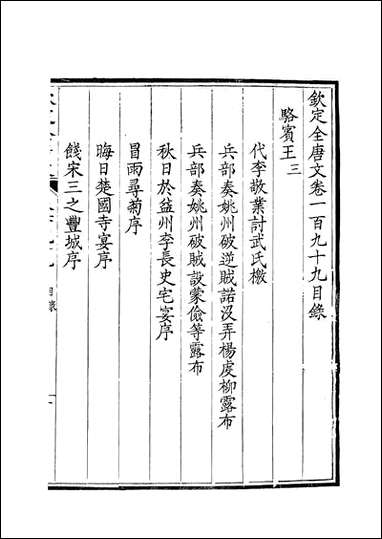 欽定全唐文卷一百九十九目錄
駱賓王三
代李敬業討武氏檄
兵部奏姚州破逆賊諾沒弄楊虔柳露布
兵部奏姚州破賊設蒙儉等露布
秋日於益州李長史宅宴序
冒雨尋菊序
晦日楚國寺宴序
餞宋三之豐城序
目錄